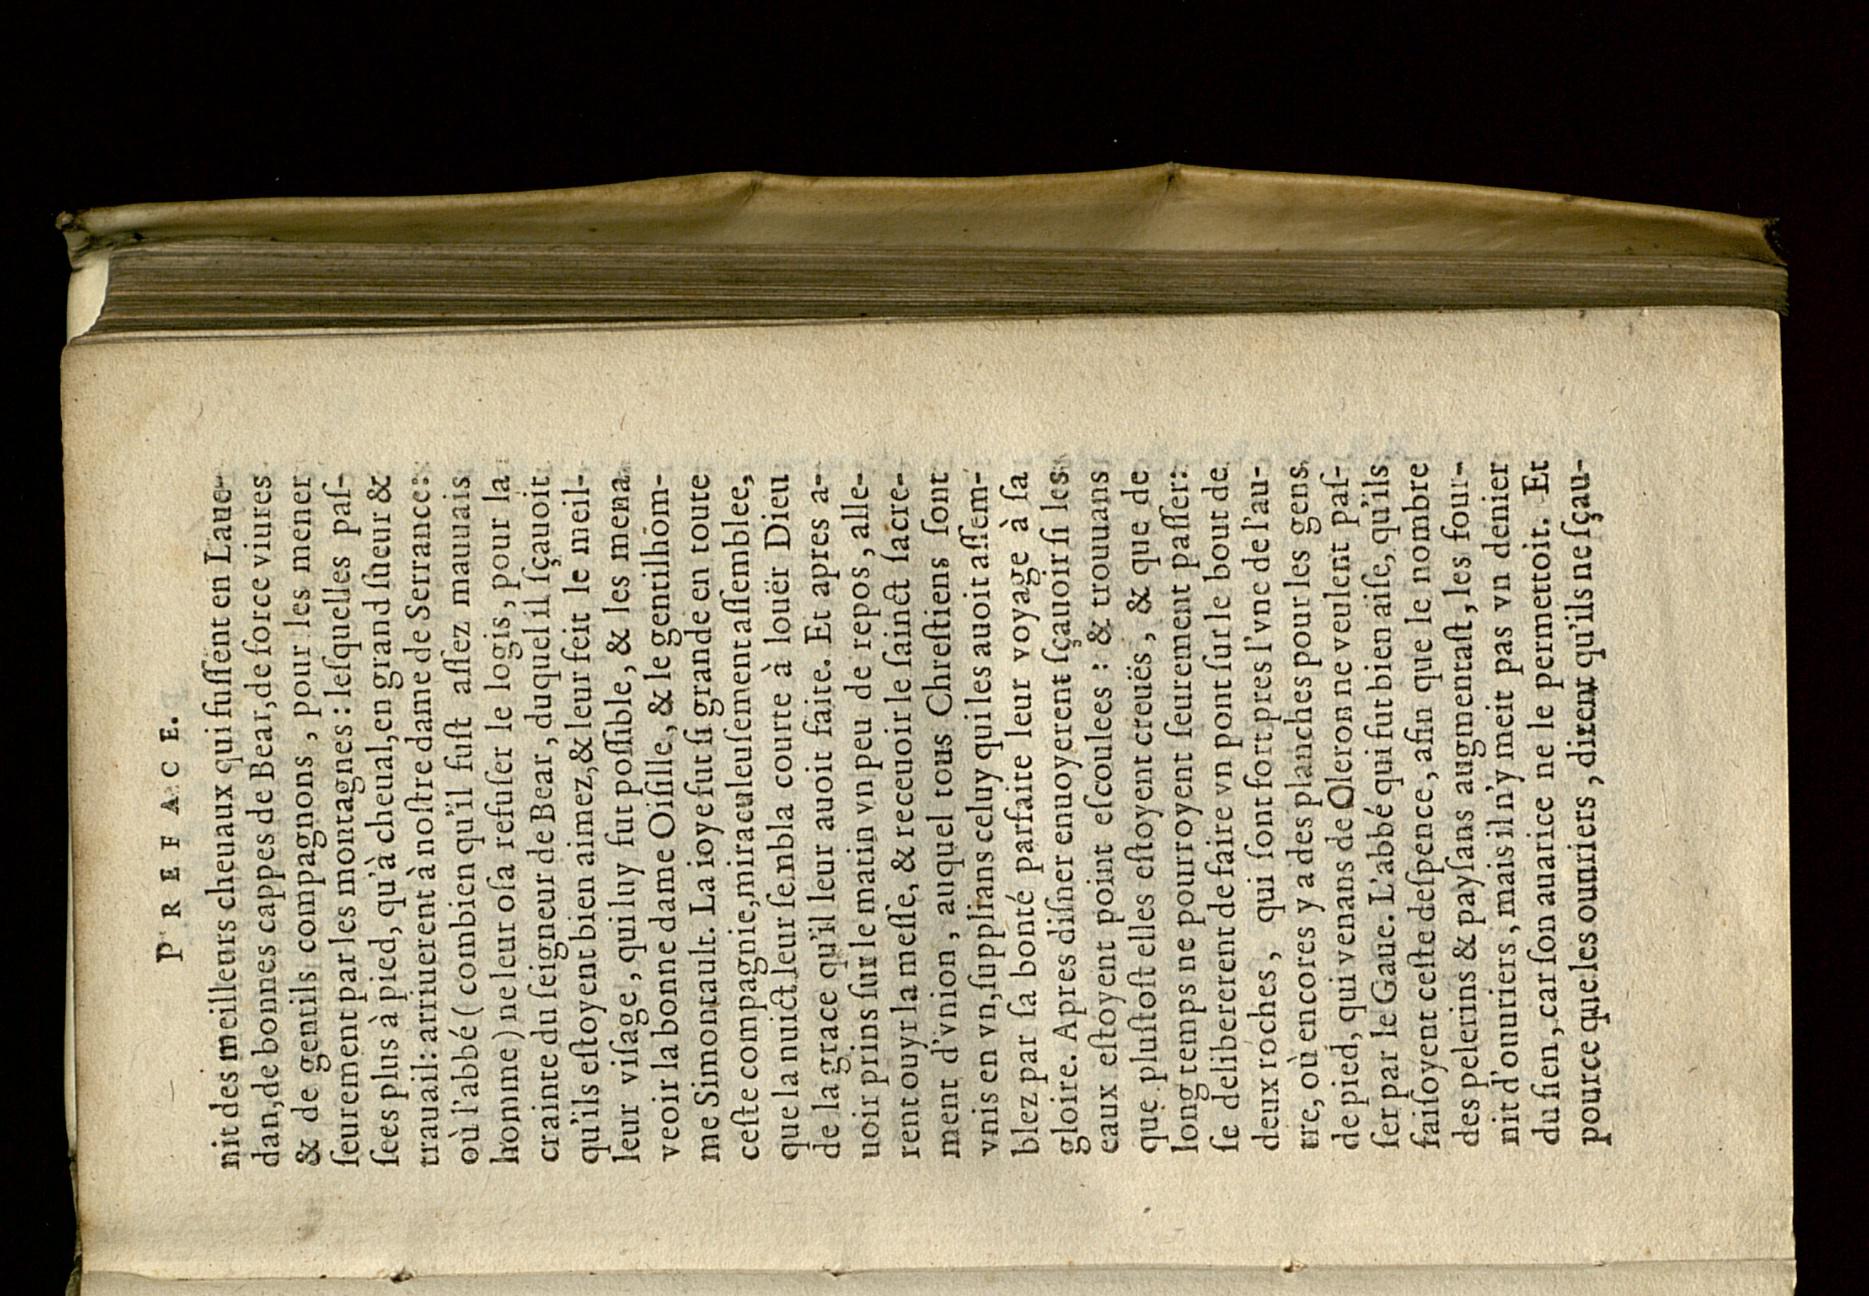 PREFACE.
nit des meilleurs cheuaux qui fuſſent en Laue-
dan, de bonnes cappes de Bear, de force viures
& de gentils compagnons, pour les mener
ſeurement par les montagnes: leſquelles paſ-
ſees plus à pied, qu'à cheual, en grand ſueur &
trauail: arriuerent à noſtre dame de Serrance:
où l'abbé (combien qu'il fuſt aſſez mauuais
homme) ne leur oſa refuſer le logis, pour la
crainte du ſeigneur de Bear, duquel il ſçauoit
qu'ils eſtoyent bien aimez, & leur feit le meil-
leur viſage, qui luy fut poſſible, & les mena
veoir la bonne dame Oiſille, & le gentilhom-
me Simontault. La ioye fut ſi grande en toute
ceſte compagnie, miraculeuſement aſſemblee,
que la nuict leur ſembla courte à louër Dieu
de la grace qu'il leur auoit faite. Et apres a-
uoir prins ſur le matin vn peu de repos, alle-
rent ouyr la meſſe, & receuoir le ſainct ſacre-
ment d'vnion, auquel tous Chreſtiens ſont
vnis en vn, ſupplians celuy qui les auoit aſſem-
blez par ſa bonté parfaite leur voyage à ſa
gloire. Apres diſner enuoyerent ſçauoir ſi les
eaux eſtoyent point eſcoulees: & trouuans
que pluſtoſt elles eſtoyent creuës, & que de
long temps ne pourroyent ſeurement paſſer:
ſe delibererent de faire vn pont ſur le bout de
deux roches, qui ſont fort pres l'vne de l'au-
tre, où encores y a des planches pour les gens
de pied, qui venans de Oleron ne veulent paſ-
ſer par le Gaue. L'abbé qui fut bien aiſe, qu'ils
faiſoyent ceſte deſpence, afin que le nombre
des pelerins & payſans augmentaſt, les four-
nit d'ouuriers, mais il n'y meit pas vn denier
du ſien, car ſon auarice ne le permettoit. Et
pource que les ouuriers, dirent qu'ils ne ſçau-